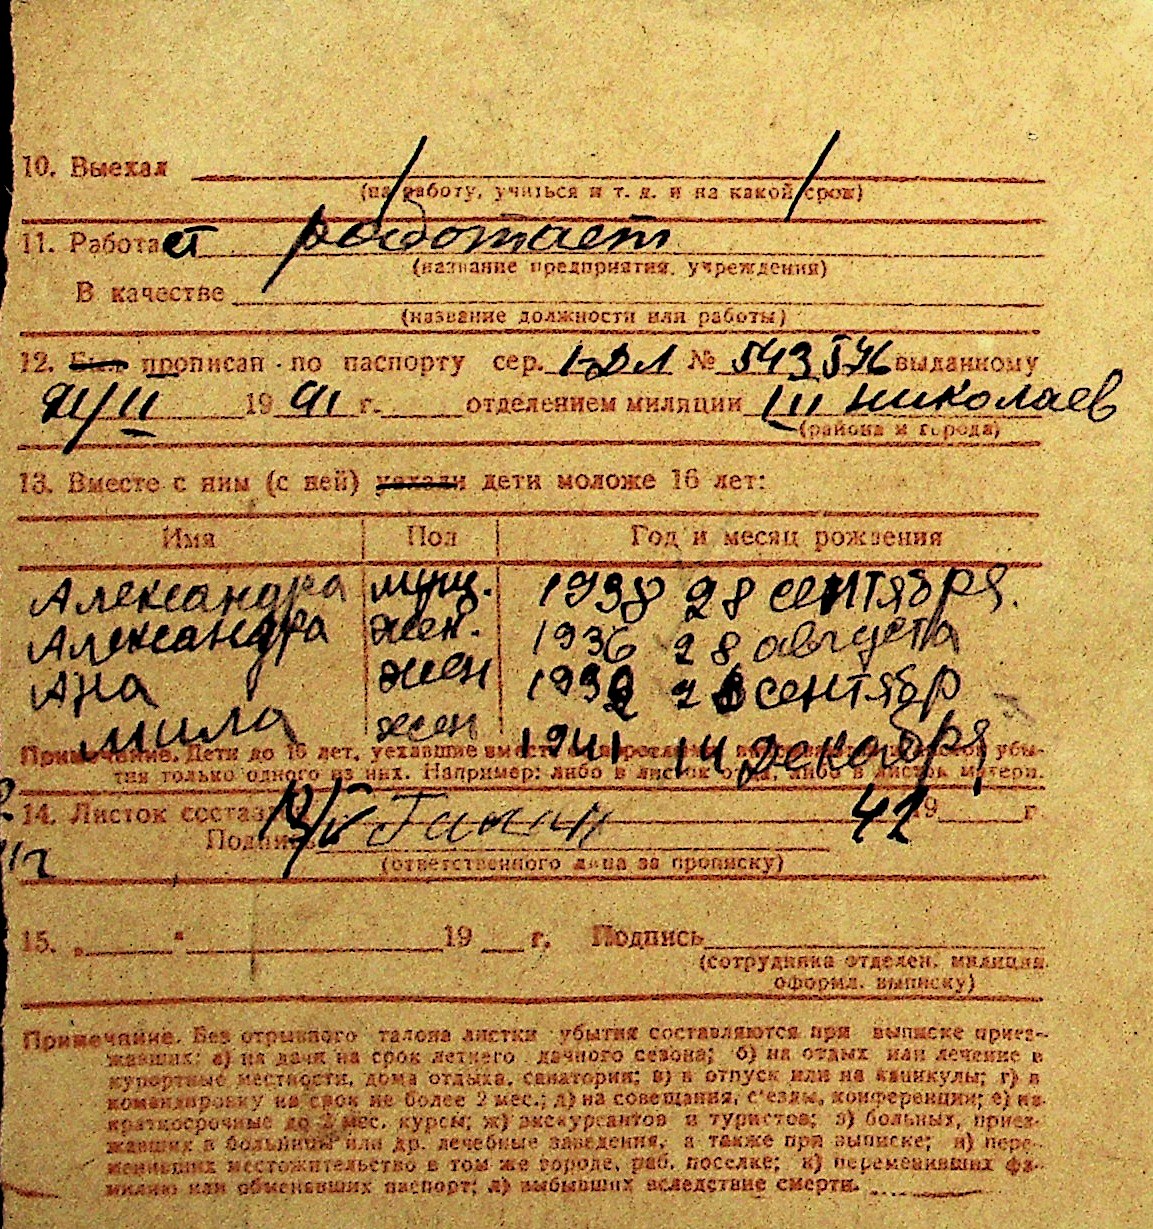 10. Выехал
(на работу, учиться и т. д. и на какой срок)
11. Работает работает
(название предприятия, учреждения)
В качестве
(название должности или работы)
12. Был прописан по паспорту сер. № 543576 выданному
21/II 1941 г. отделением милиции III николаев
(района и города)
13. Вместе с ним (с ней) уехали дети моложе 16 лет:
Имя Пол Год и месяц рождения
Александра мущ. 1938 28 сентября.
Александра жен. 1936 28 августа
Ана жен сентябр
мила жен 1941 14 декабря
Примечание. Дети до 16 лет, уехавшие вместе убы-
тия только одного из них. Например: либо в листок отца, либо в листок матери.
14. Листок составлен 42 19 г
Подпись
(ответственного лица за прописку)
15. „ " 19 г. Подпись
(сотрудника отделен. милиции
оформл. выписку)
Примечание. Без отрывного талона листки убытия составляются при выписке приез-
жавших: а) на дачи на срок летнего дачного сезона; б) на отдых или лечение в
курортные местности, дома отдыха, санатории; в) в отпуск или на каникулы; г) в
командировку на срок не более 2 мес.; д) на совещания, съезды, конференции; е) на
краткосрочные до 2 мес. курсы; ж) экскурсантов и туристов; з) больных, приез-
жавших в больницы или др. лечебные заведения, а также при выписке; и) пере-
менивших местожительство в том же городе, раб. поселке; к) переменивших фа-
милию или обменявших паспорт; л) выбывших вследствие смерти.